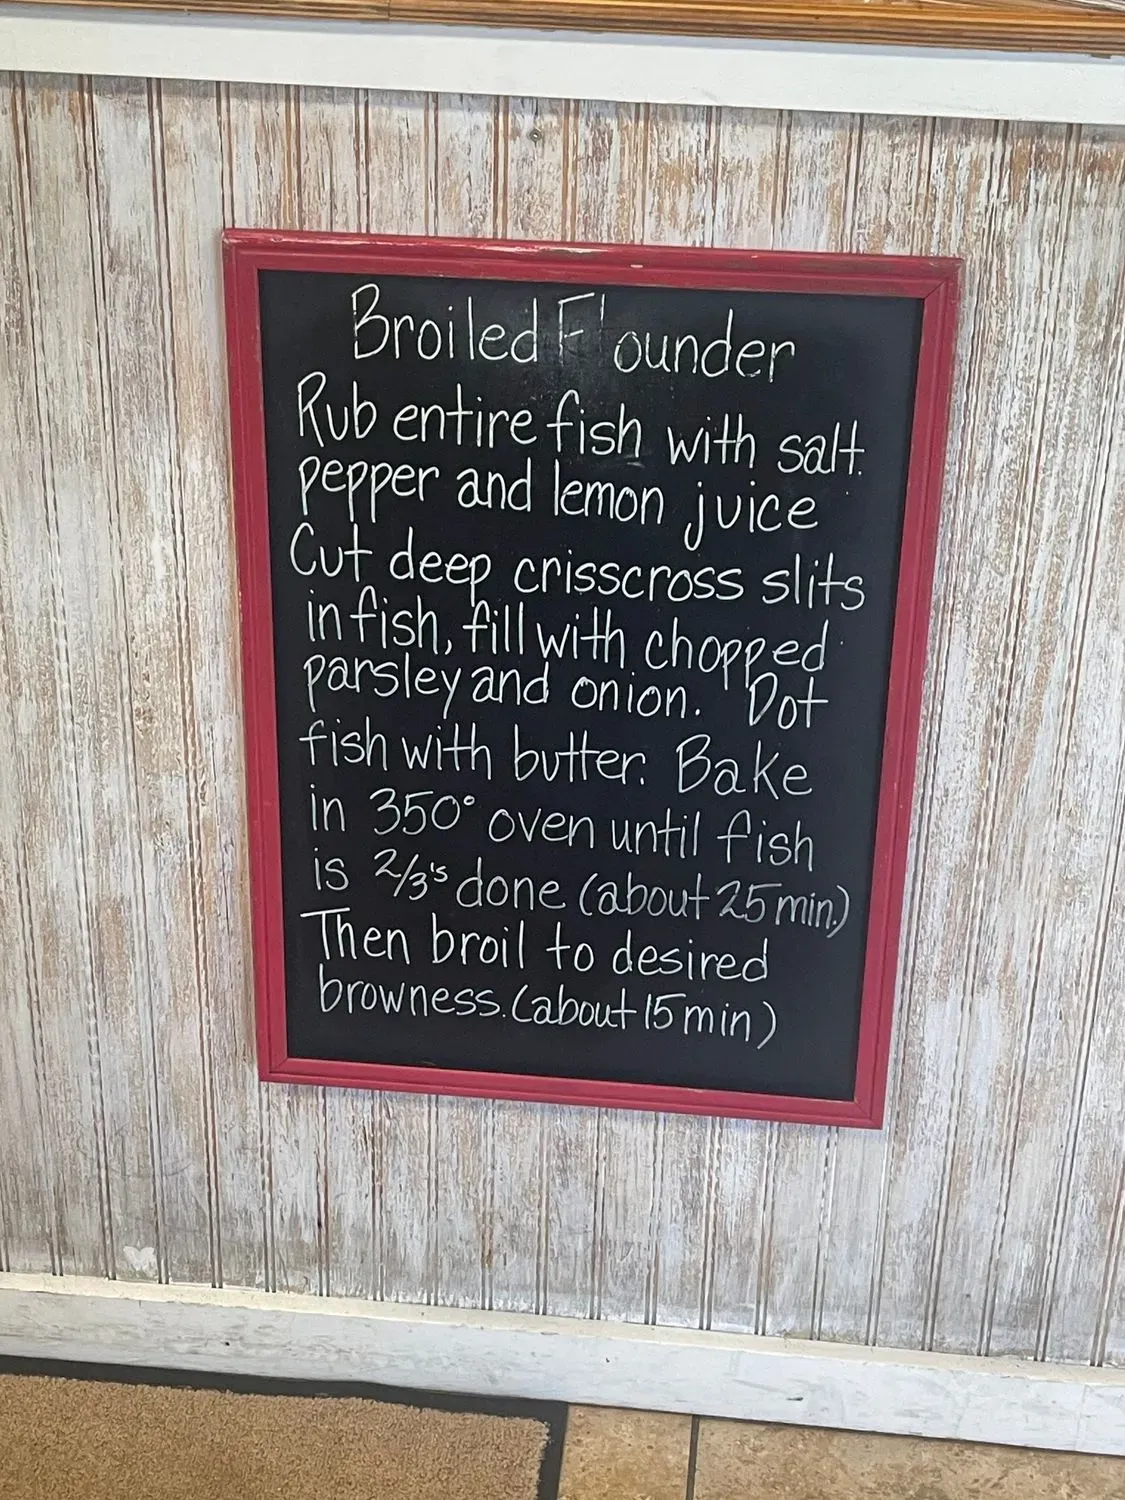 Broiled Flounder
Rub entire fish with salt.
pepper and lemon juice
Cut deep crisscross slits
in fish, fill with chopped
parsley and onion. Dot
fish with butter. Bake
in 350° oven until fish
is 2/3's done (about 25 min.)
Then broil to desired
browness. (about 15 min)